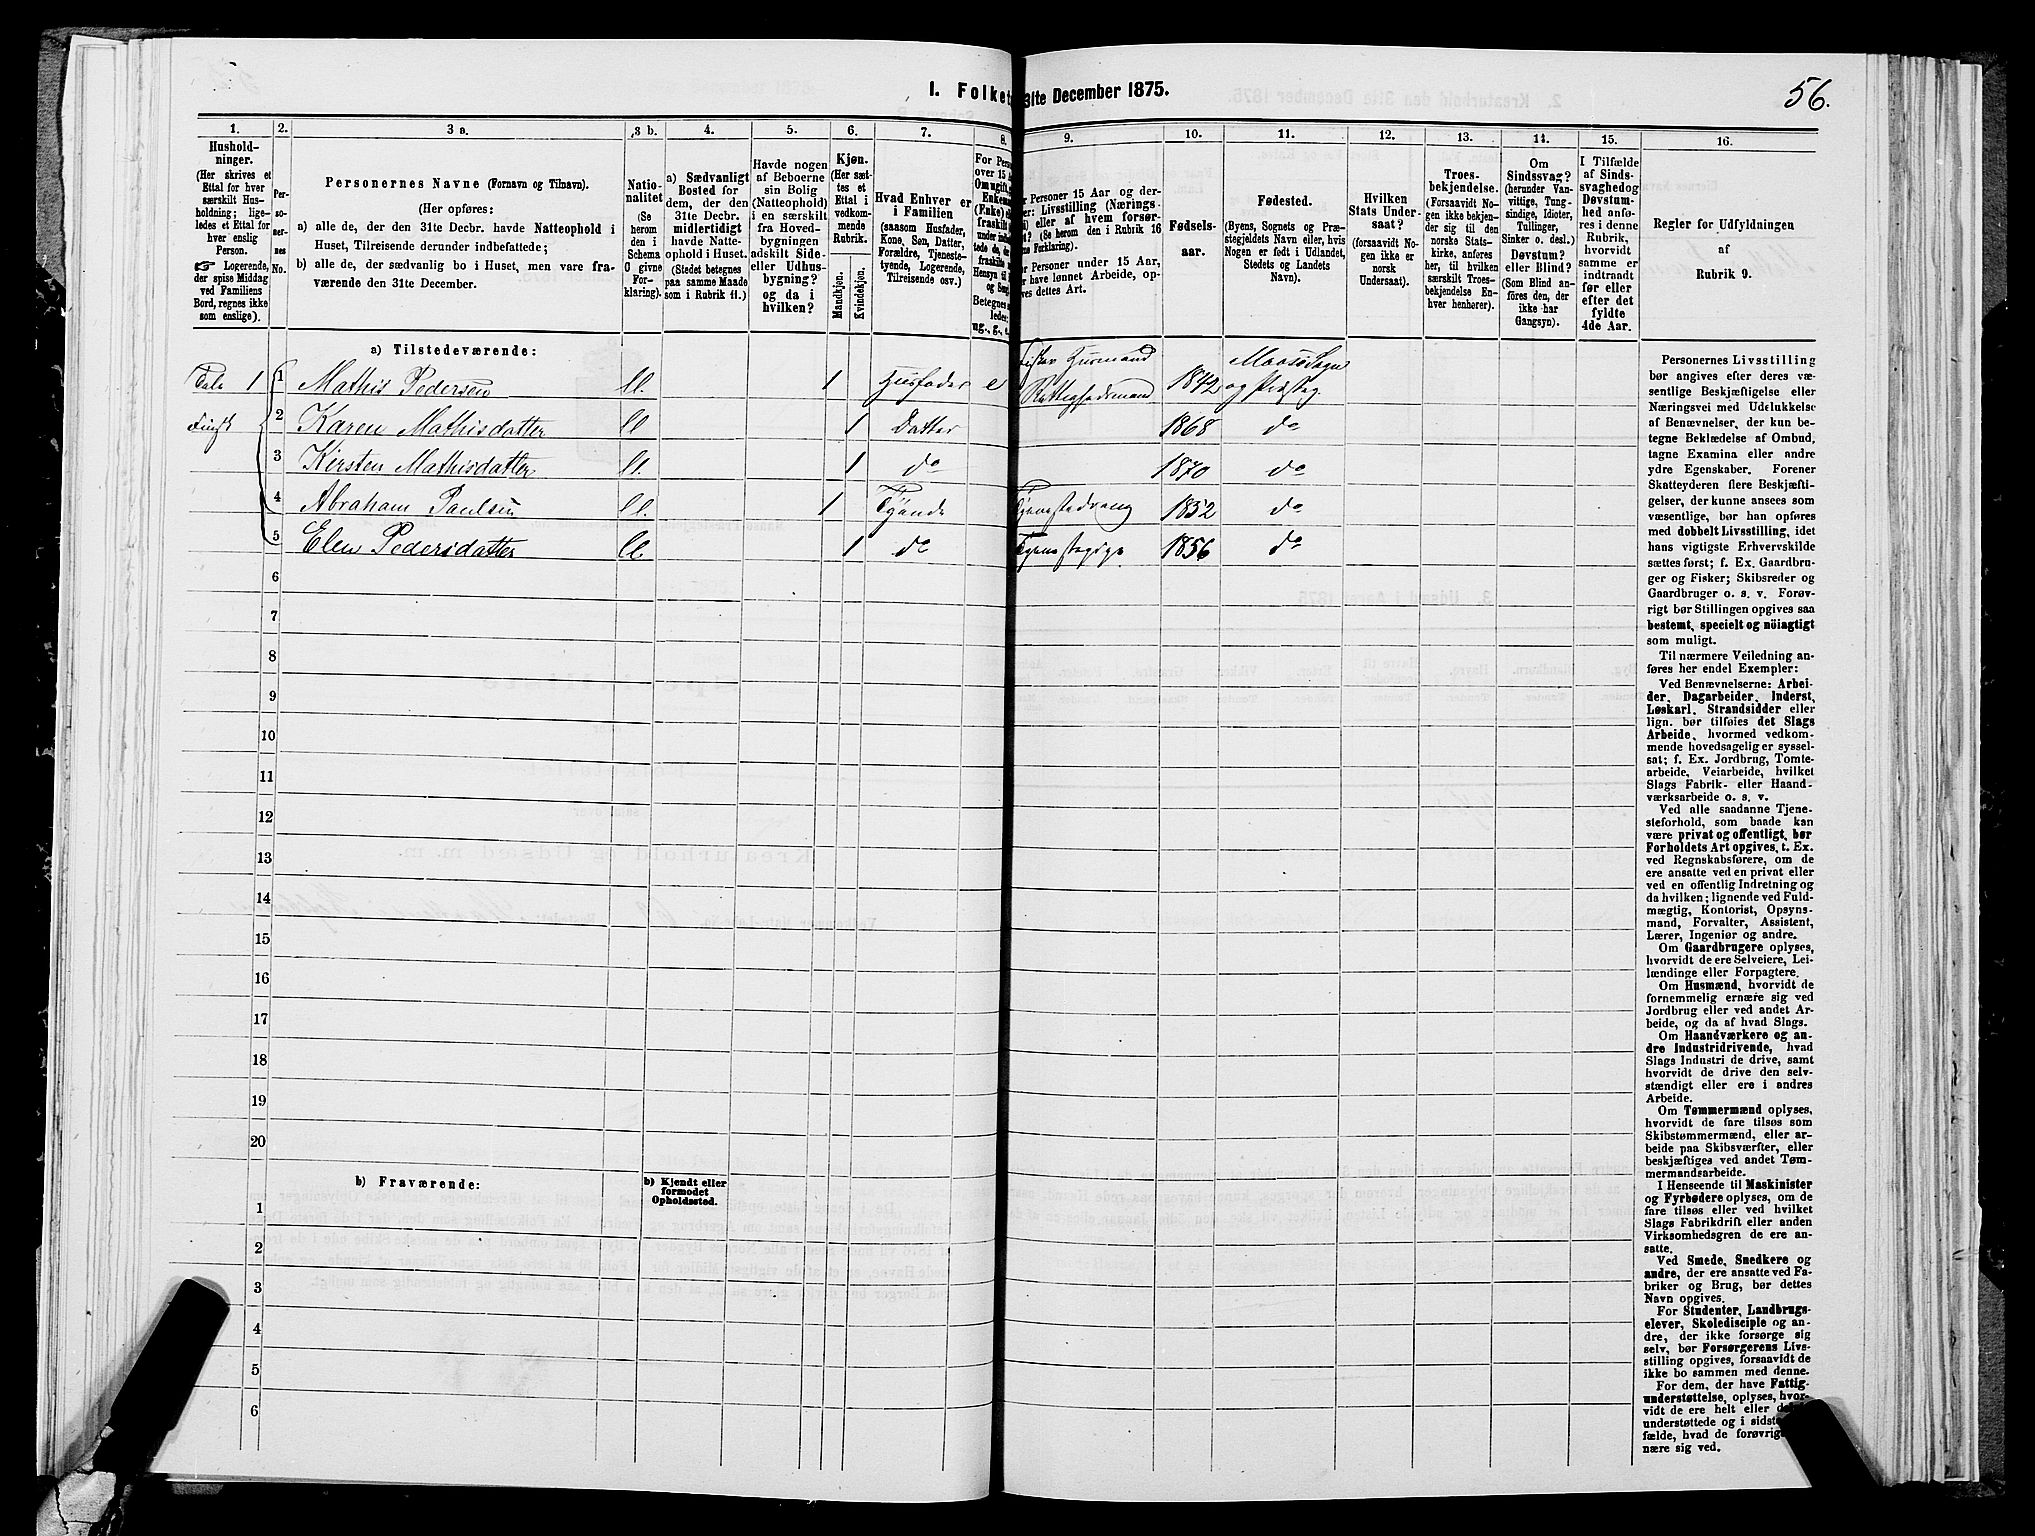 56.
1. Folket
31te December 1875.
1. 2. 3 a. 3 b. 4. 5. 6. 7. 8. 9. 10. 11. 12. 13. 14. 15. 16.
Hushold-
ninger.
(Her skrives et
Ettal for hver
særskilt Hus-
holdning; lige-
ledes et Ettal for
hver enslig
Person.
☞ Logerende,
der spise Middag
ved Familiens
Bord, regnes ikke
som enslige).
Per-
so-
ner-
nes
No.
Personernes Navne (Fornavn og Tilnavn).
(Her opføres:
a) alle de, der den 31te Decbr. havde Natteophold i
Huset, Tilreisende derunder indbefattede;
b) alle de, der sædvanlig bo i Huset, men vare fra-
værende den 31te December.
Natio-
nalitet
(Se
herom
den i
Schema
U givne
For-
klaring).
a) Sædvanligt
Bosted for
dem, der den
31te Decbr.
midlertidigt
havde Natte-
ophold i Huset.
(Stedet betegnes
paa samme Maade
som i Rubrik 11.)
Havde nogen
af Beboerne
sin Bolig
(Natteophold)
i en særskilt
fra Hoved-
bygningen
adskilt Side-
eller Udhus-
bygning?
og da i
hvilken?
Kjøn.
(Her sæt-
tes et
Ettal i
vedkom-
mende
Rubrik.
Mandkjøn.
Kvindekjøn.
Hvad Enhver er
i Familien
(saasom Husfader,
Kone, Søn, Datter,
Forældre, Tjeneste-
tyende, Logerende,
Tilreisende osv.)
For Pers
over 15
Betegnes
ledes:
ug., g., e.
Personer 15 Aar og der-
Livsstilling (Nærings-
eller af hvem forsør-
(Se herom den i Rubrik 16
Forklaring).
Personer under 15 Aar,
have lønnet Arbeide, op-
dettes Art.
Fødsels-
aar.
Fødested.
(Byens, Sognets og Præ-
stegjeldets Navn eller, hvis
Nogen er født i Udlandet,
Stedets og Landets
Navn).
Hvilken
Stats Under-
saat?
(forsaavidt No-
gen ikke er
norsk
Undersaat).
Troes-
bekjendelse.
(Forsaavidt No-
gen ikke bekjen-
der sig til den
norske Stats-
kirke, anføres
her, til hvilken
særskilt Troes-
bekjendelse En-
hver henhører).
Om
Sindssvag?
(herunder Van-
vittige, Tung-
sindige, Idioter,
Tullinger,
Sinker o. desl.)
Døvstum?
eller Blind?
(Som Blind an-
føres den, der
ikke har
Gangsyn).
I Tilfælde
af Sinds-
svaghed og
Døvstum-
hed anfø-
res i denne
Rubrik,
hvorvidt
samme er
indtraadt
før eller
efter det
fyldte
4de Aar.
Regler for Udfyldningen
af
Rubrik 9.
a) Tilstedeværende:
1 1 Mathis Pedersen 1 Husfader e Fisker Husmand 1842 Maasø Sogn
og Præsteg.
Finsk 2 Karen Mathisdatter 1 Datter 1868 do
3 Kirsten Mathisdatter 1 do 1870 do
4 Abraham Paulsen 1 Tyende Tjenestedreng 1852 do
5 Elen Pedersdatter 1 do Tjenestepige 1856 do
6
7
8
9
10
11
12
13
14
15
16
17
18
19
20
b) Fraværende:
b) Kjendt eller
formodet
Opholdssted.
1
2
3
4
5
6
Personernes Livsstilling
bør angives efter deres væ-
sentlige Beskjæftigelse eller
Næringsvei med Udelukkelse
af Benævnelser, der kun be-
tegne Beklædelse af Ombud,
tagne Examina eller andre
ydre Egenskaber. Forener
Skatteyderen flere Beskjæfti-
gelser, der kunne ansees som
væsentlige, bør han opføres
med dobbelt Livsstilling, idet
hans vigtigste Erhvervskilde
sættes først; f. Ex. Gaardbru-
ger og Fisker; Skibsreder og
Gaardbruger o. s. v. Forøv-
rigt bør Stillingen opgives saa
bestemt, specielt og nöiagtigt
som muligt.
Til nærmere Veiledning an-
føres her endel Exempler:
Ved Benævnelserne: Arbei-
der, Dagarbeider, Inderst,
Løskarl, Strandsidder eller
lign. bør tilføies det Slags
Arbeide, hvormed vedkom-
mende hovedsagelig er syssel-
sat; f. Ex. Jordbrug, Tomte-
arbeide, Veiarbeide, hvilket
Slags Fabrik- eller Haand-
værksarbeide o. s. v.
Ved alle saadanne Tjene-
steforhold, som baade kan
være privat og offentligt, bør
Forholdets Art opgives, t. Ex.
ved Regnskabsførere, om de
ere ansatte ved en privat eller
ved en offentlig Indretning og
da hvilken; lignende ved Fuld-
mægtig, Kontorist, Opsyns-
mand, Forvalter, Assistent,
Lærer, Ingeniør og andre.
Om Gaardbrugere oplyses,
hvorvidt de ere Selveiere, Lei-
lændinge eller Forpagtere.
Om Husmænd, hvorvidt de
fornemmelig ernære sig ved
Jordbrug eller ved andet Ar-
beide, og da af hvad Slags.
Om Haandværkere og an-
dre Industridrivende, hvad
Slags Industri de drive, samt
hvorvidt de drive den selv-
stændigt eller ere i andres
Arbeide.
Om Tømmermænd oplyses,
hvorvidt de fare tilsøs som
Skibstømmermænd, eller ar-
beide paa Skibsværfter, eller
beskjæftiges ved andet Tøm-
mermandsarbeide.
I Henseende til Maskinister
og Fyrbødere oplyses, om de
fare tilsøs eller ved hvilket
Slags Fabrikdrift eller anden
Virksomhedsgren de ere an-
satte.
Ved Smede, Snedkere og
andre, der ere ansatte ved Fa-
briker og Brug, bør dettes
Navn opgives.
For Studenter, Landbrugs-
elever, Skoledisciple og an-
dre, der ikke forsørge sig
selv, bør Forsørgerens Livs-
stilling opgives, forsaavidt de
ikke bo sammen med denne.
For dem, der have Fattig-
understøttelse, oplyses, hvor-
vidt de ere helt eller
understøttede og i sidst
fælde, hvad de forøvrig
nære sig ved.